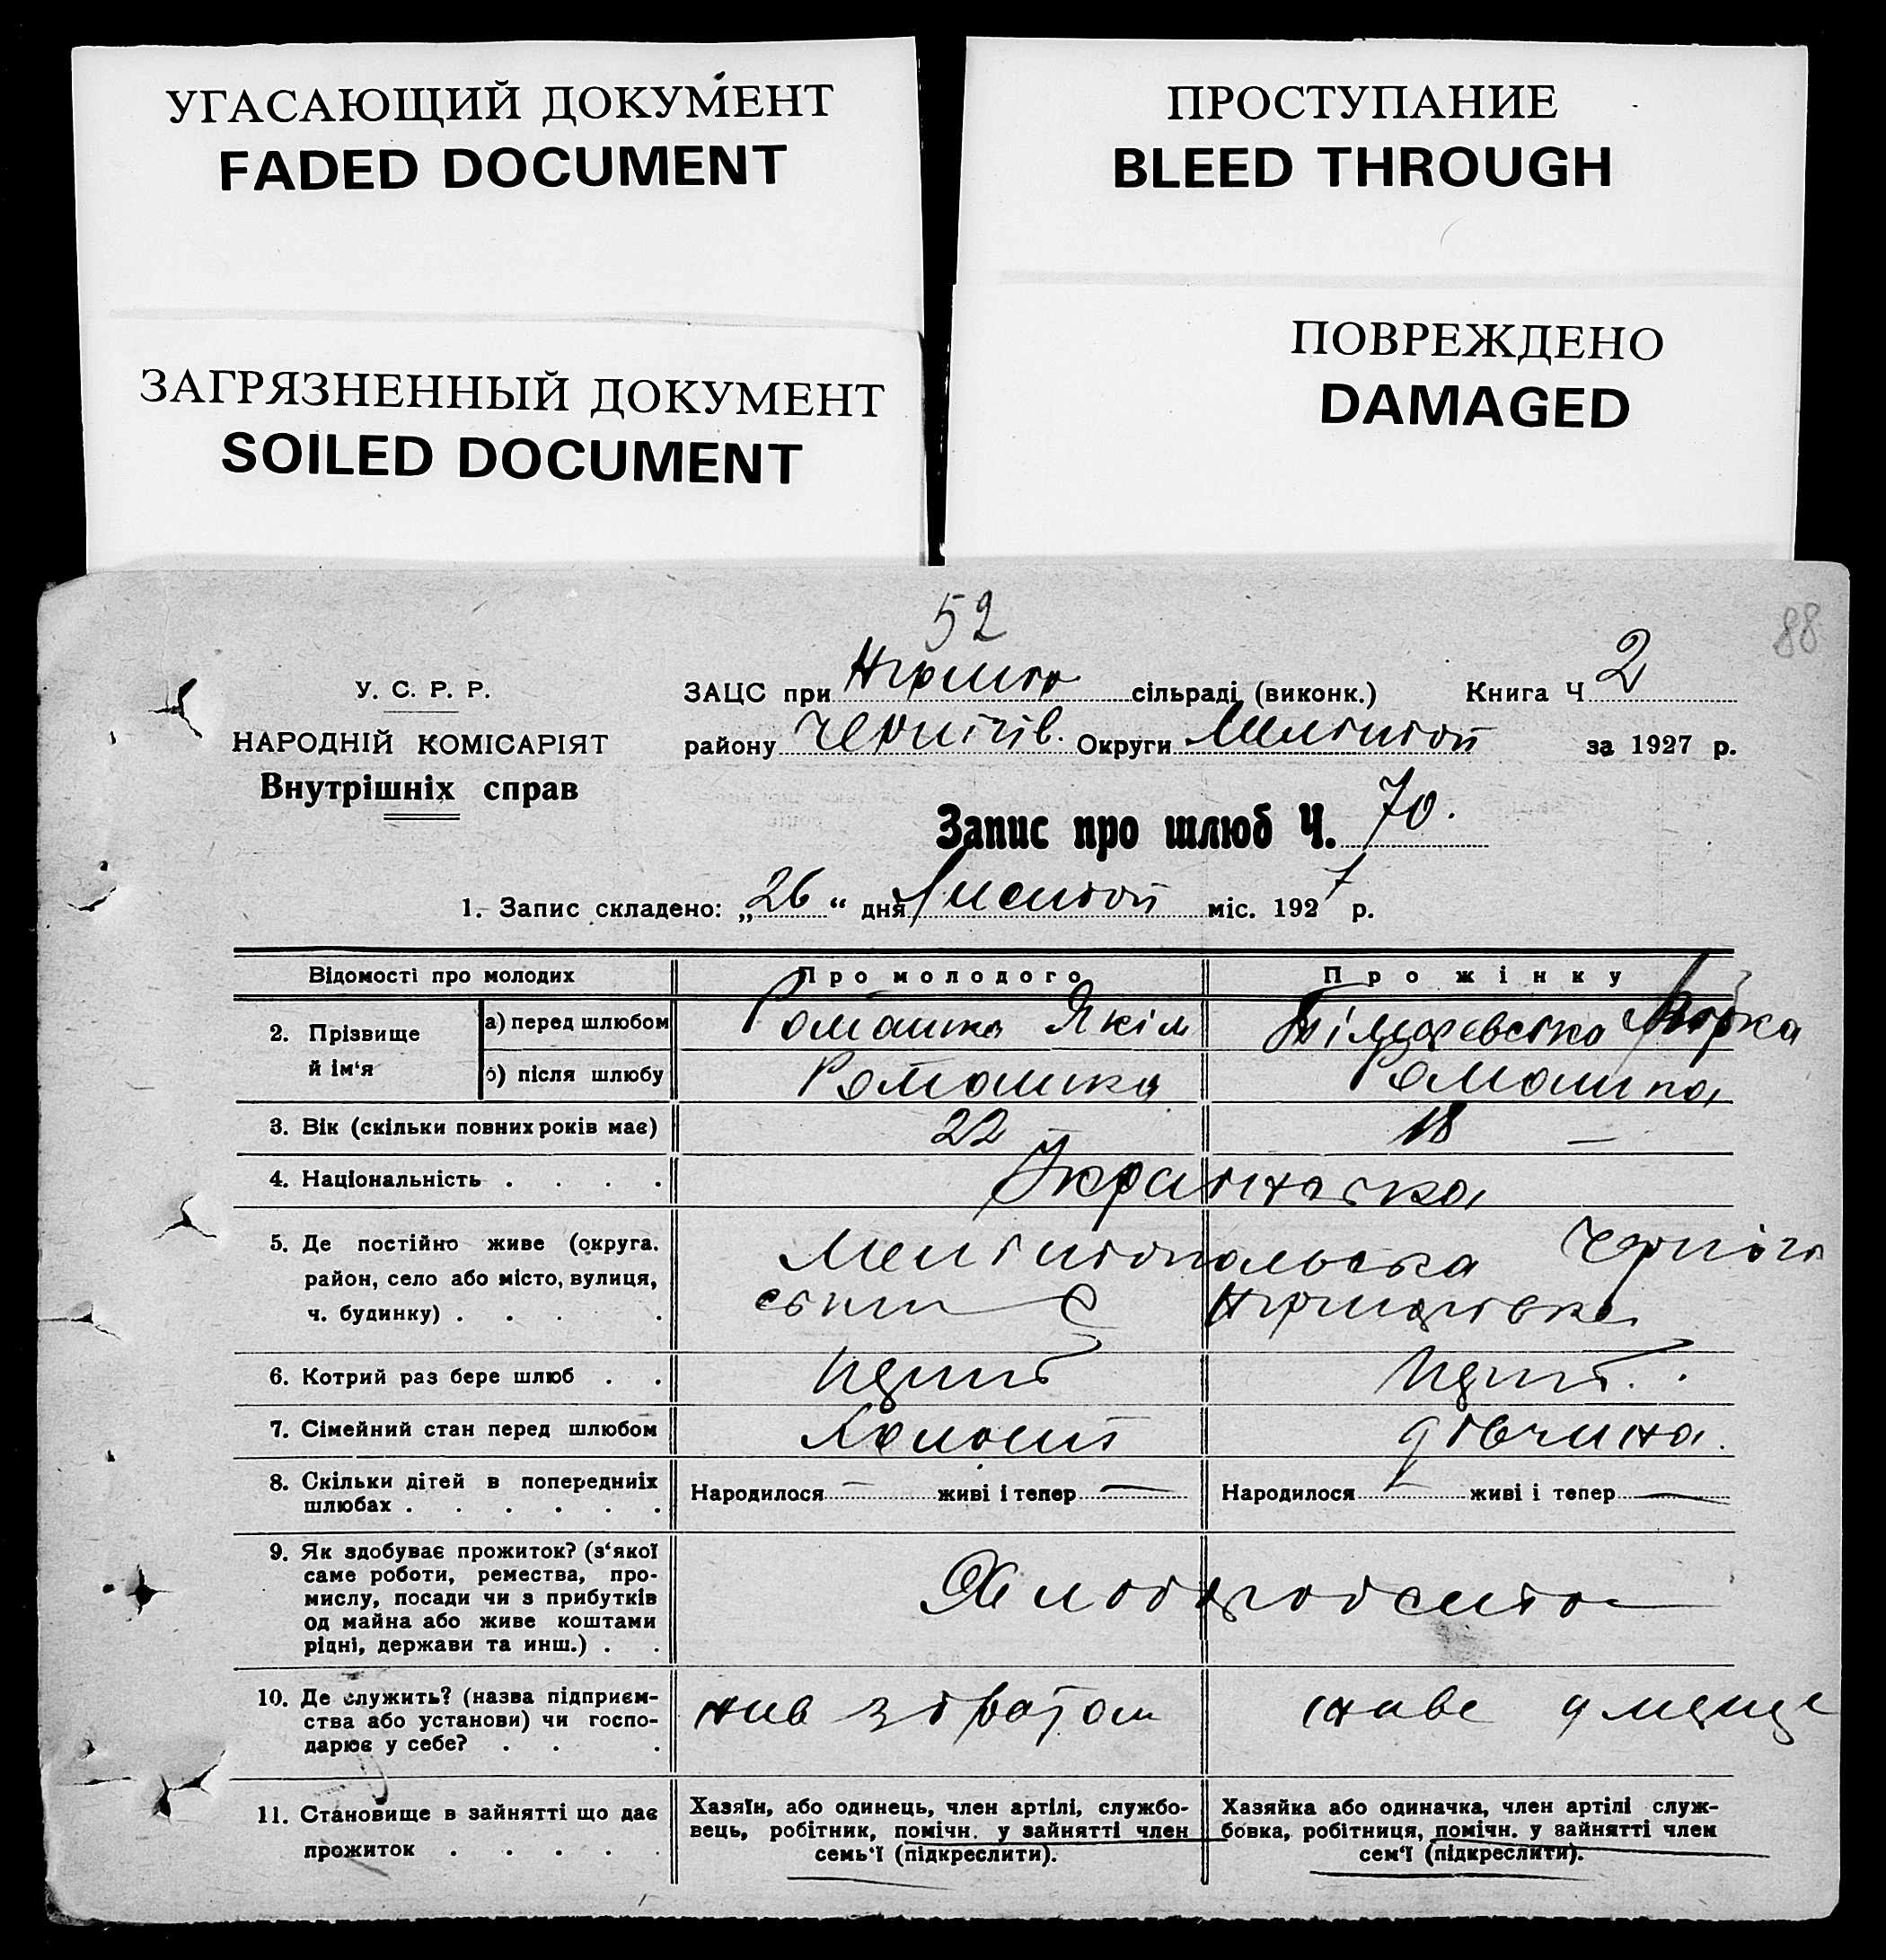 УГАСАЮЩИЙ ДОКУМЕНТ
FADED DOCUMENT
ЗАГРЯЗНЕННЫЙ ДОКУМЕНТ
SOILED DOCUMENT
ПРОСТУПАНИЕ
BLEED THROUGH
ПОВРЕЖДЕНО
DAMAGED
52
88
У. С. Р. Р.
НАРОДНІЙ КОМІСАРІЯТ
Внутрішніх справ
ЗАЦС при сільраді (виконк.) Книга Ч 2
району Чернігів. Округи Меліт за 1927 р.
Запис про шлюб Ч. 70.
1. Запис складено: „26“ дня Листоп міс. 1927 р.
Відомості про молодих
Про молодого
Про жінку
2. Прізвище й ім‘я
а) перед шлюбом
Ромашка Якім
б) після шлюбу
Ромашка
Ромашка
3. Вік (скільки повних років має)
22
18 —
4. Національність . . . .
Українська
5. Де постійно живе (округа,
район, село або місто, вулиця,
ч. будинку) . . . .
Мелітопольська Черніго
6. Котрий раз бере шлюб . .
7. Сімейний стан перед шлюбом
Холост
дівчина.
8. Скільки дітей в попередниіх
шлюбах . . . . . .
Народилося — живі і тепер —
Народилося — живі і тепер —
9. Як здобуває прожиток? (з‘якої
саме роботи, ремества, про-
мислу, посади чи з прибутків
од майна або живе коштами
рідні, держави та инш.) . .
Хліборобство
10. Де служить? (назва підприєм-
ства або установи) чи госпо-
дарює у себе? . . .
жив з братом
живе
11. Становище в зайнятті що дає
прожиток . . . . .
Хазяїн, або одинець, член артілі, службо-
вець, робітник, помічн. у зайнятті член
семь‘ї (підкреслити).
Хазяйка або одиначка, член артілі служ-
бовка, робітниця, помічн. у зайнятті член
сем‘ї (підкреслити).